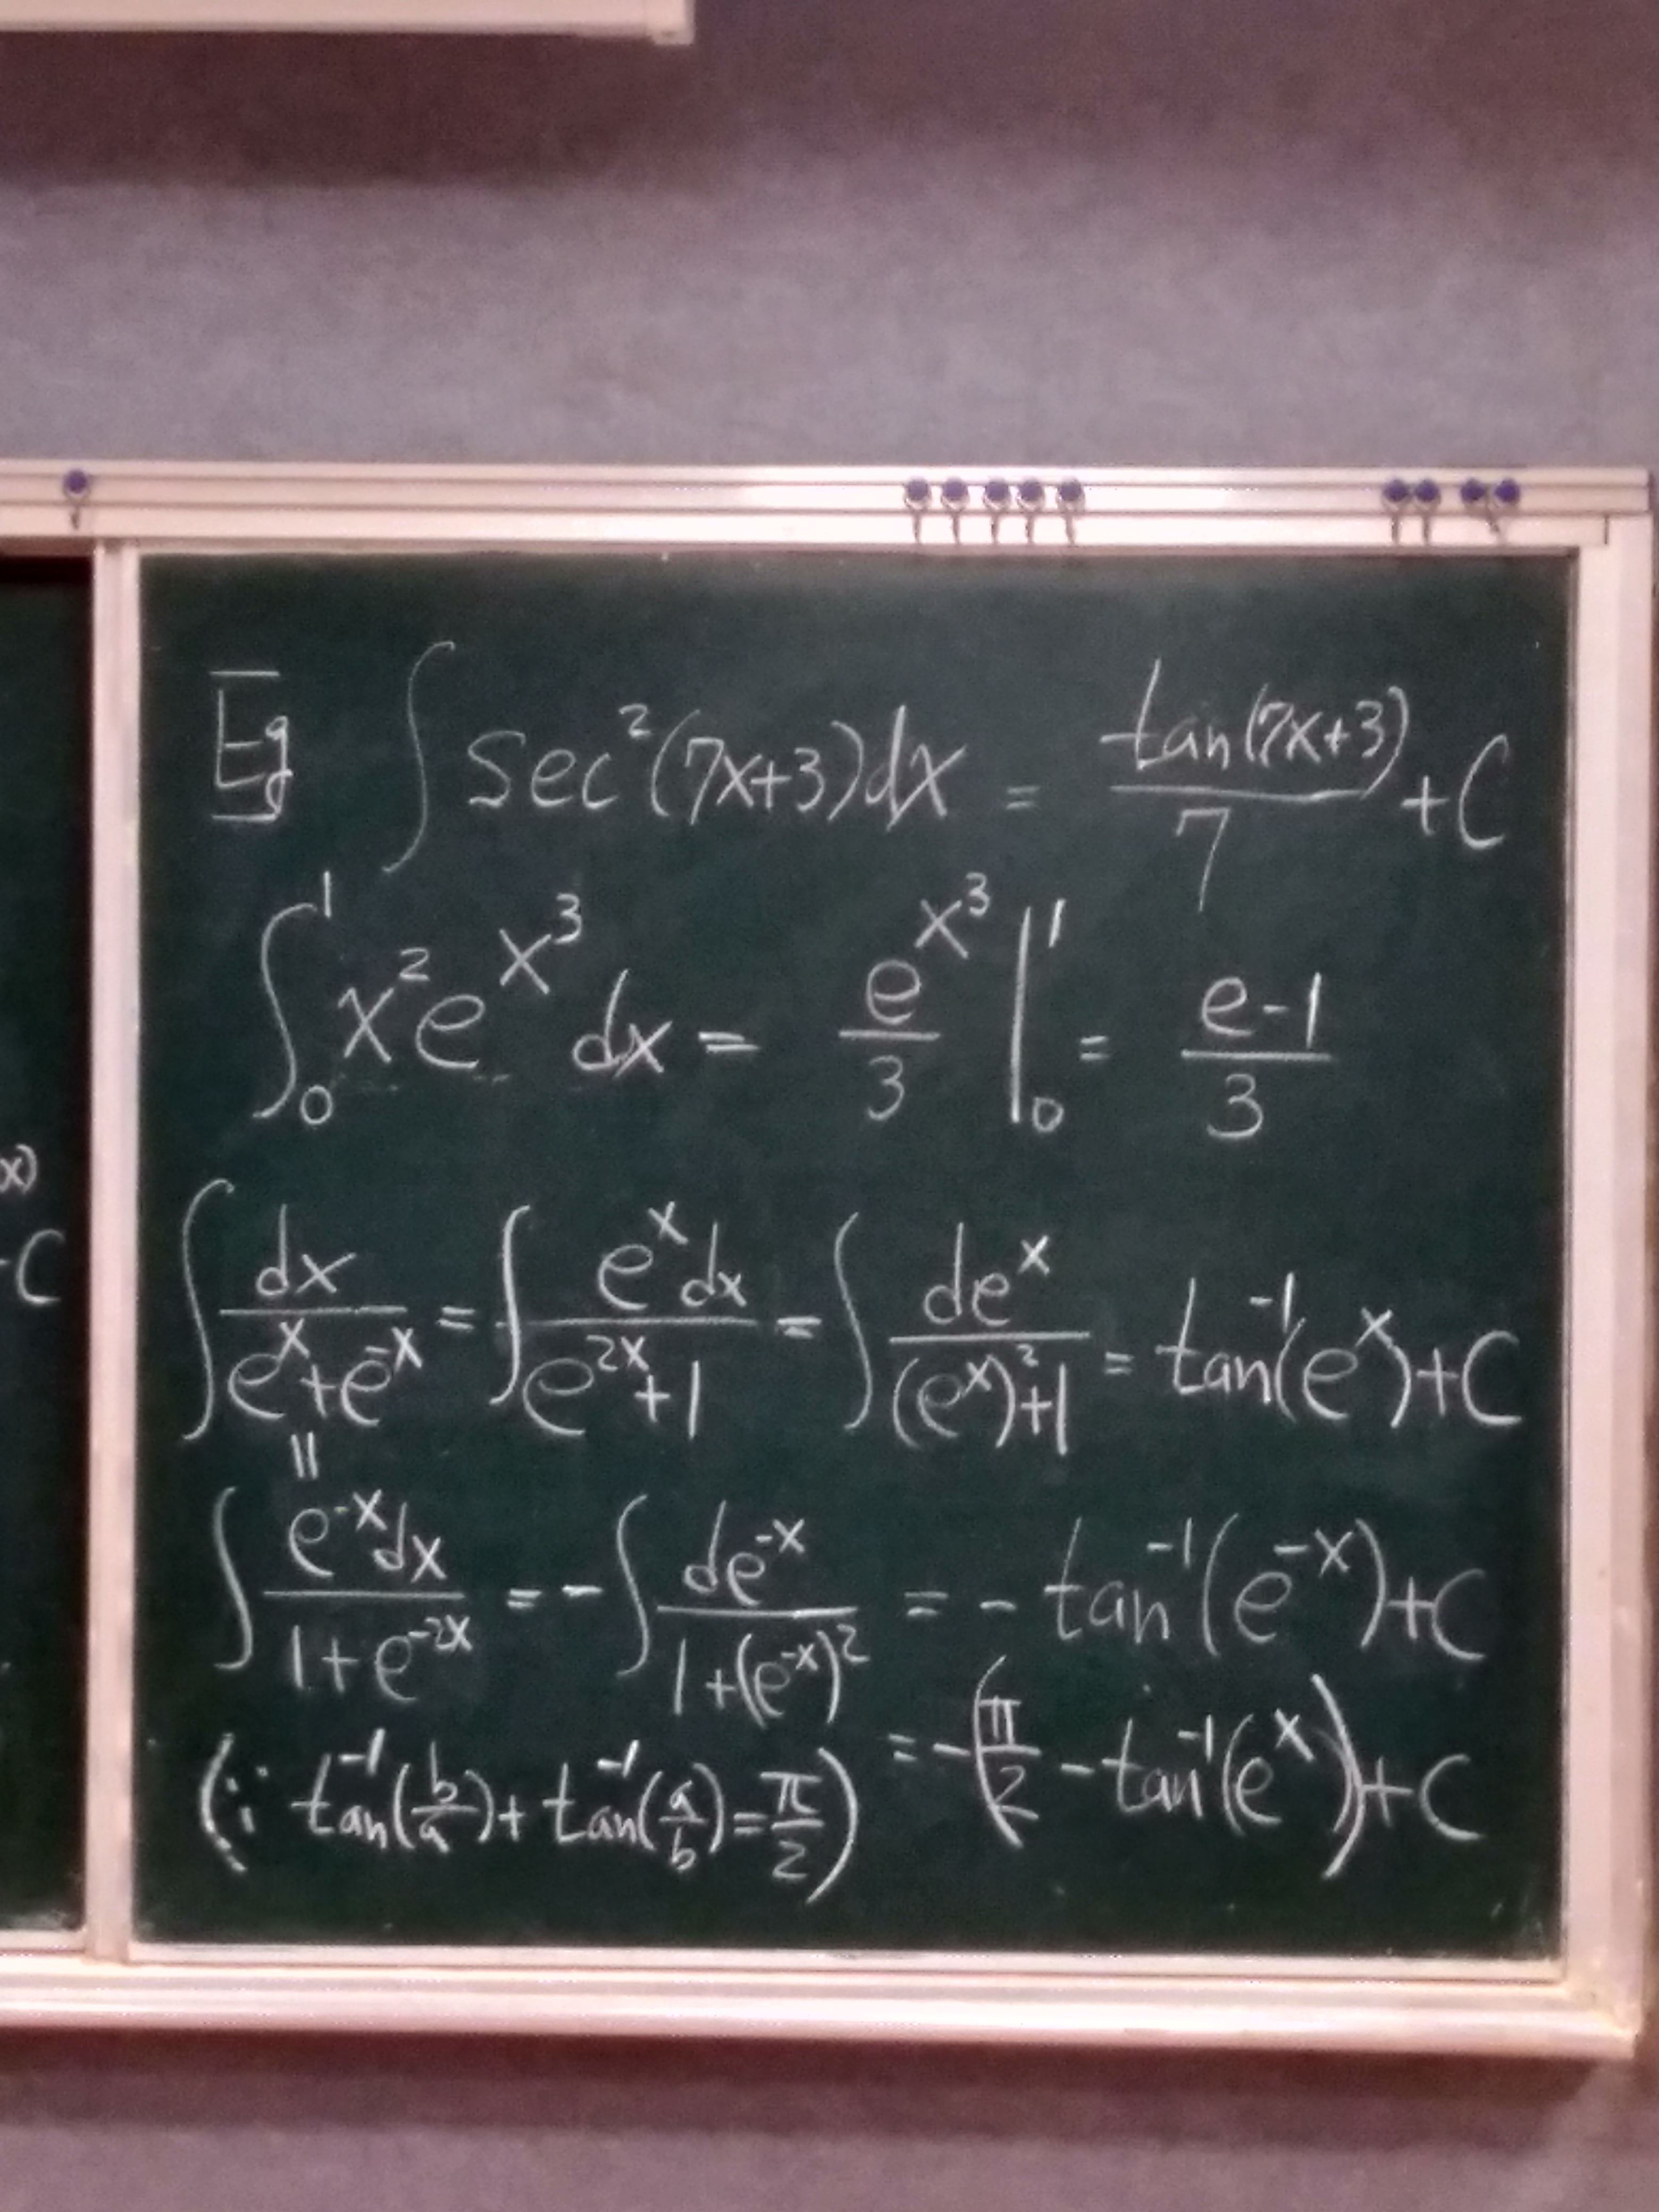 Eg ∫ sec²(7x+3)dx = tan(7x+3)/7 + C
∫₀¹ x² e^(x³) dx = e^(x³)/3 |₀¹ = (e-1)/3
∫ dx/(e^x+e^-x) = ∫ e^x dx/(e^2x+1) = ∫ de^x/((e^x)²+1) = tan⁻¹(e^x)+C
x)
C
||
∫ e^-x dx/(1+e^-2x) = -∫ de^-x/(1+(e^-x)²) = -tan⁻¹(e^-x)+C
(∵ tan⁻¹(b/a)+tan⁻¹(a/b)=π/2) = -(π/2 - tan⁻¹(e^x))+C